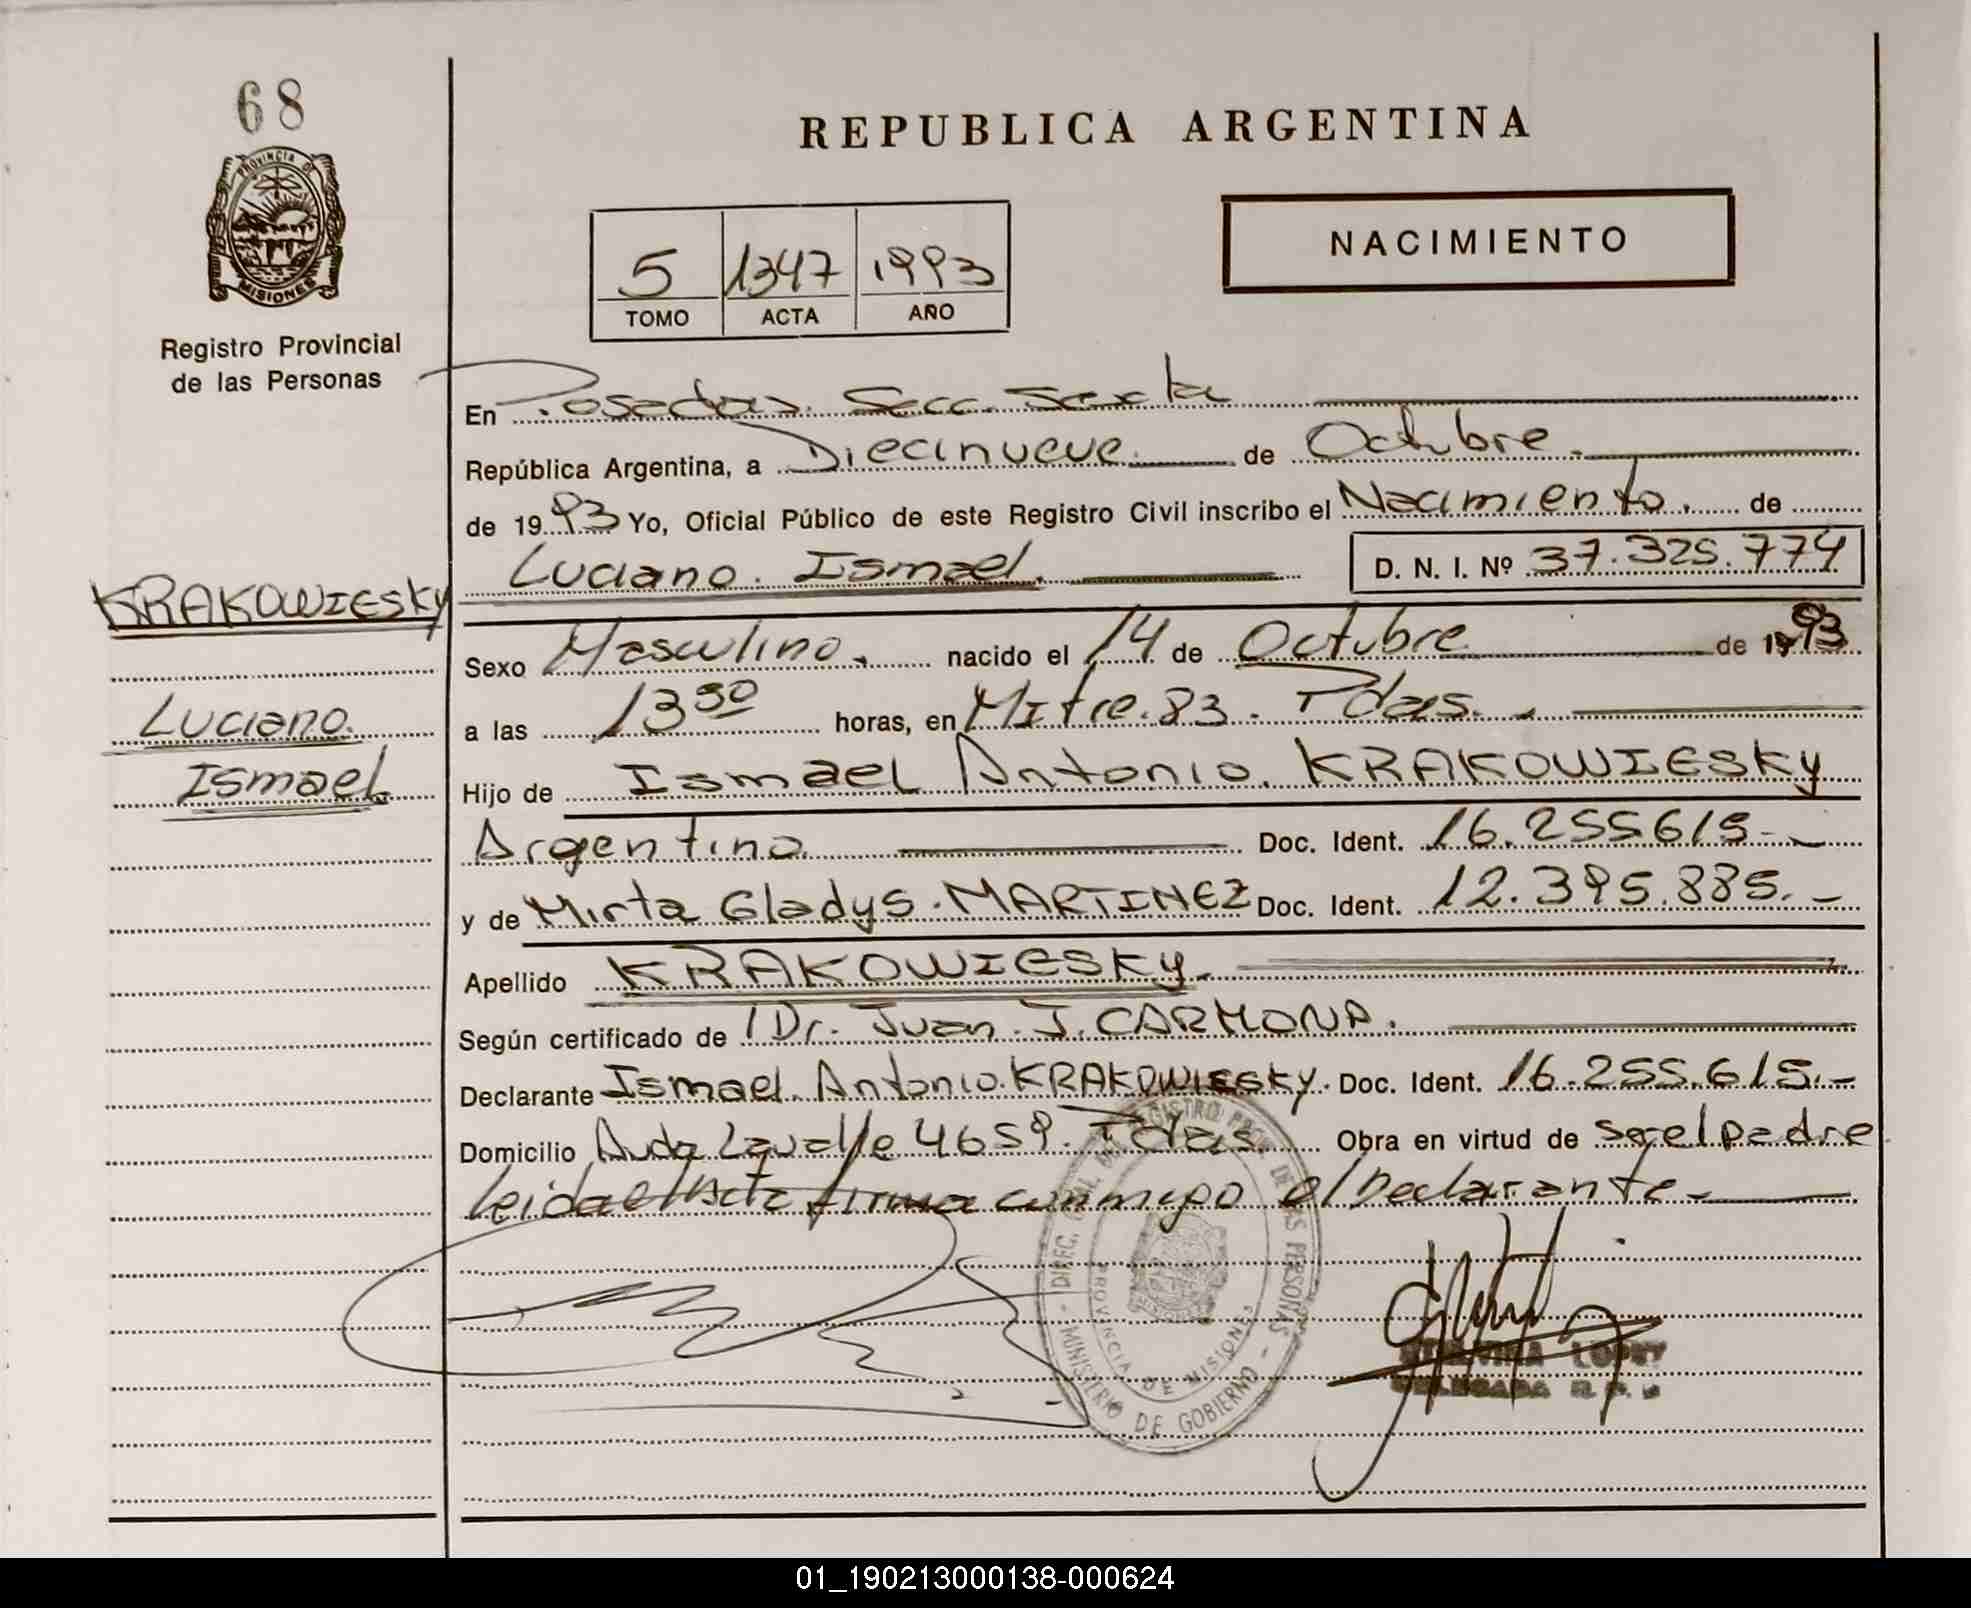 68
PROVINCIA DE
MISIONES
Registro Provincial
de las Personas
KRAKOWIESKY
Luciano.
Ismael.
REPUBLICA ARGENTINA
5 1347 1993
TOMO ACTA AÑO
NACIMIENTO
En Posadas. Secc. Sexta
República Argentina, a Diecinueve. de Octubre.
de 1993 Yo, Oficial Público de este Registro Civil inscribo el Nacimiento. de
Luciano. Ismael. D. N. I. Nº 37.325.774
Sexo Masculino. nacido el 14 de Octubre de 1993
a las 13 30 horas, en Mitre. 83. Pdas.
Hijo de Ismael Antonio. KRAKOWIESKY
Argentino. Doc. Ident. 16.255615.-
y de Mirta Gladys. MARTINEZ Doc. Ident. 12.395.885.-
Apellido KRAKOWIESKY.
Según certificado de Dr. Juan. J. CARMONA.
Declarante Ismael. Antonio. KRAKOWIESKY. Doc. Ident. 16.255.615.-
Domicilio Avda Lavalle 4659. Pdas. Obra en virtud de ser el padre
Leida el Acta firma conmigo el Declarante.-
DIREC. GRAL. DEL REGISTRO PROV. DE LAS PERSONAS
PROVINCIA DE MISIONES
- MINISTERIO DE GOBIERNO -
01_190213000138-000624